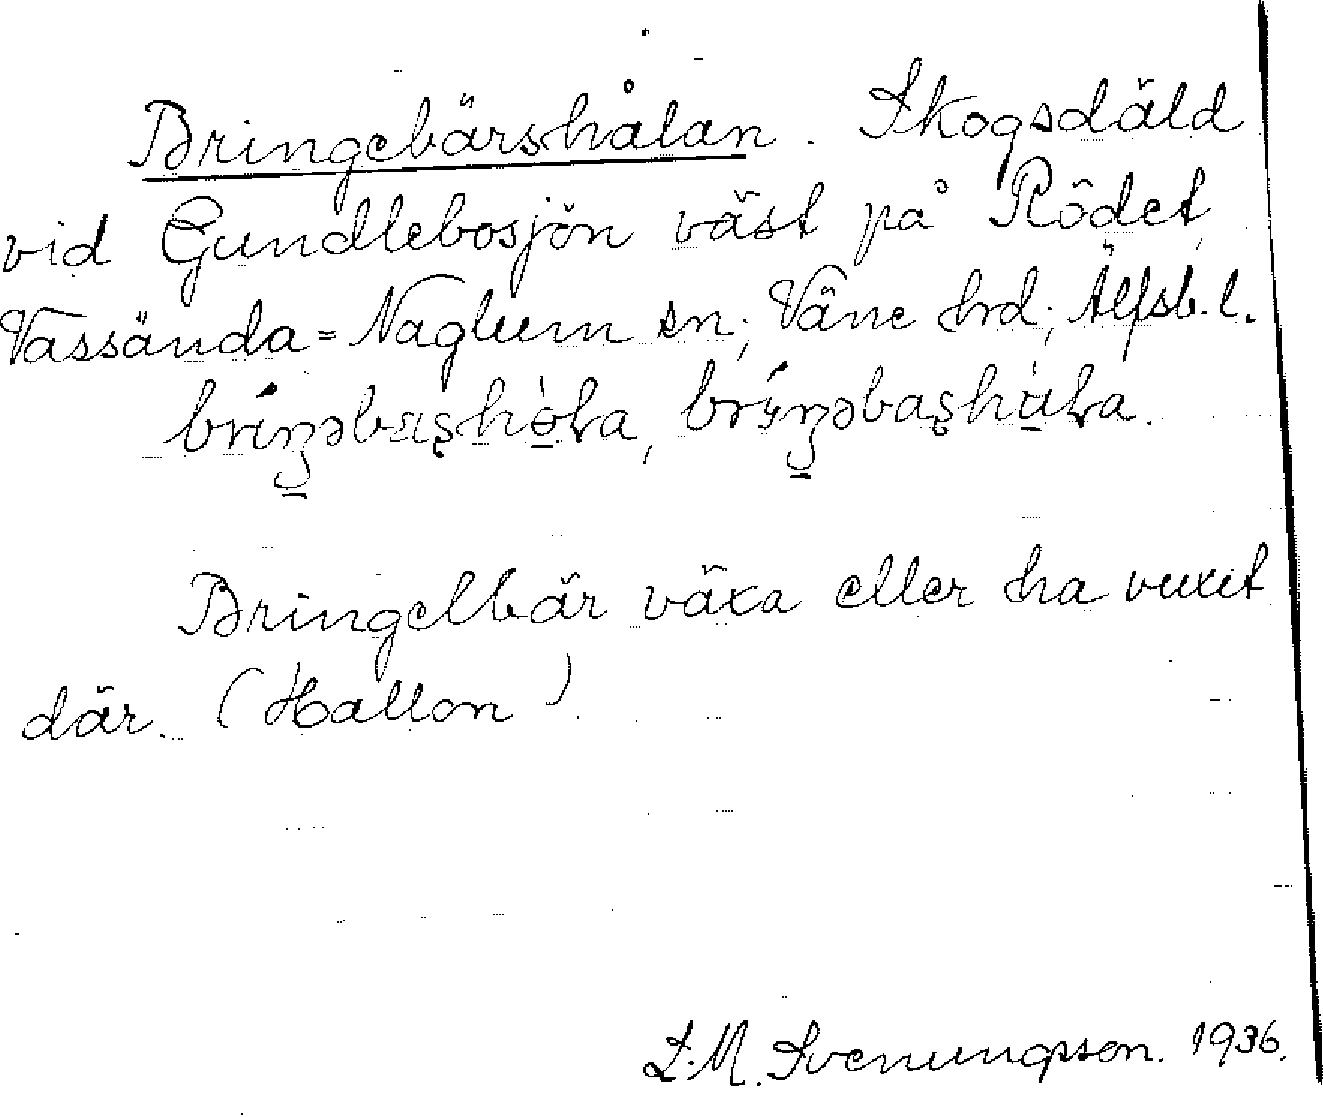 Bringebärshålan. Skogsdäld
vid Gundlebosjön väst på Rôdet,
Vassända=Naglum sn; Väne hrd; Älfsb.l.
bríŋəbaʂhò̱ɫa, bríŋəbaʂhà̱ɫa.
Bringelbär växa eller ha vuxit
där. (Hallon)
L.M. Svenungsson. 1936.